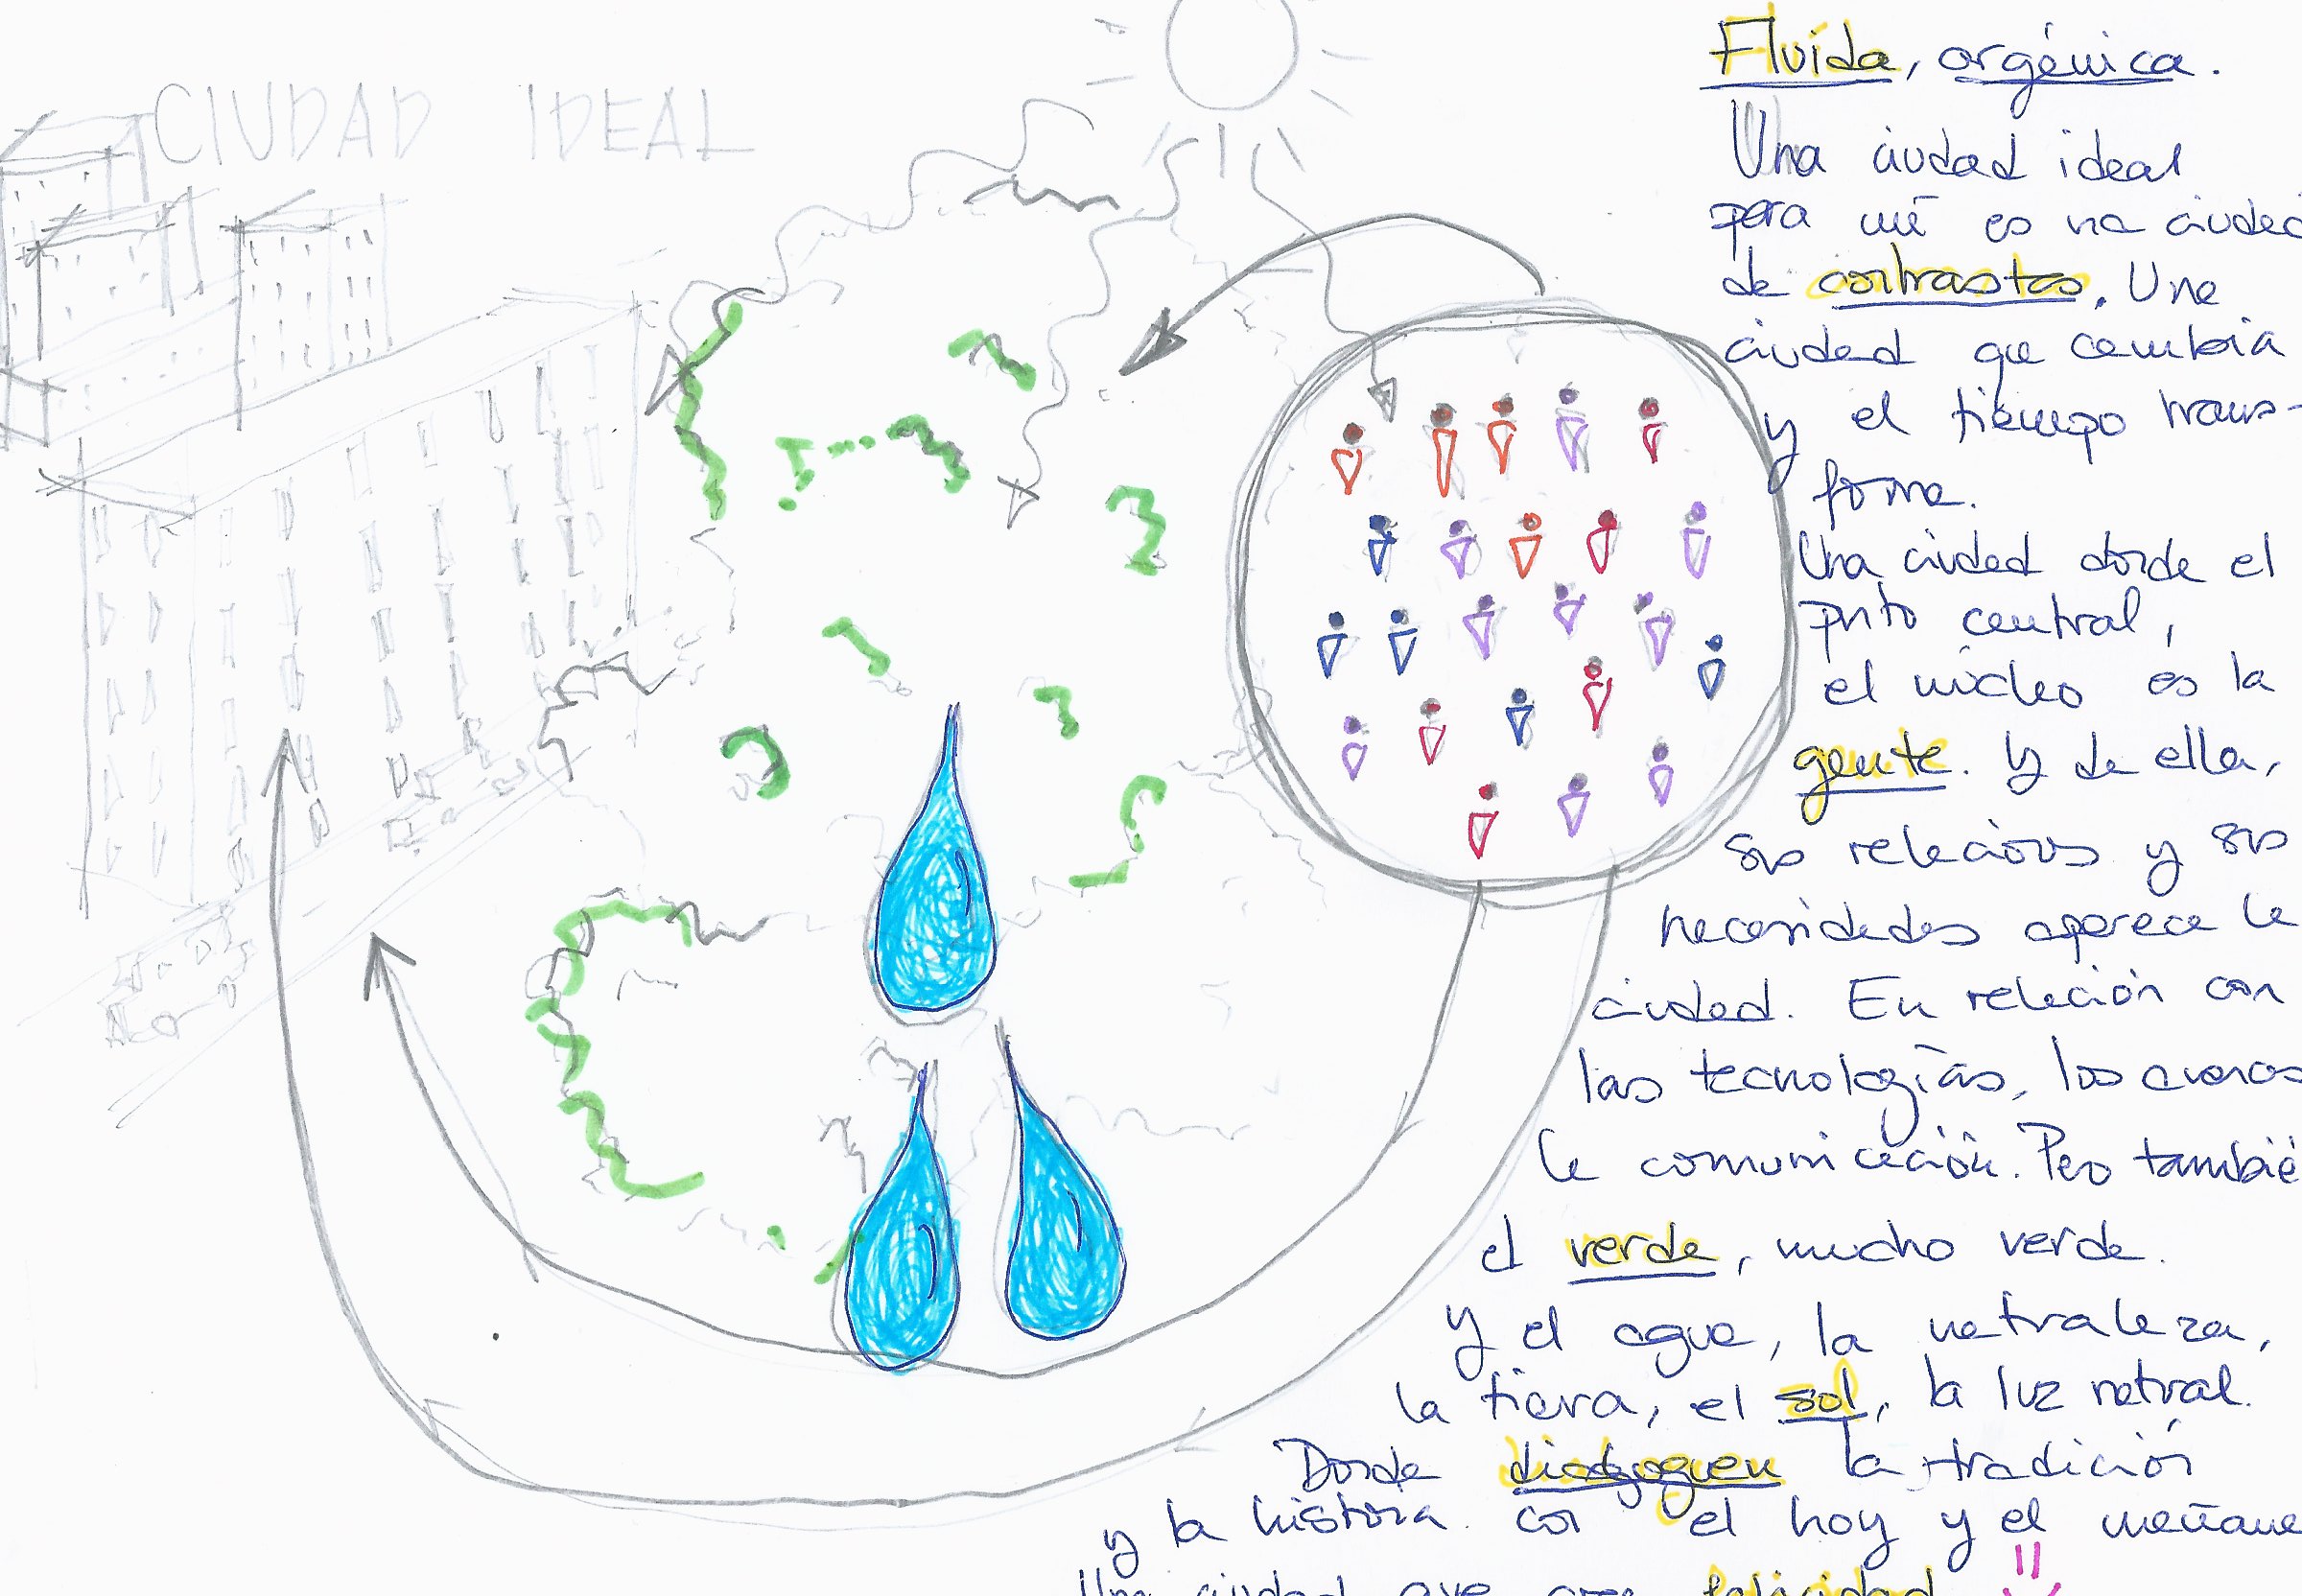 CIUDAD IDEAL
Fluída, orgánica.
Una ciudad ideal
para mí es una ciudad
de contrastes. Una
ciudad que cambia
y el tiempo trans-
forma.
Una ciudad donde el
punto central,
el núcleo es la
gente. Y de ella,
sus relaciones y sus
necesidades aparece la
ciudad. En relación con
las tecnologías, los
la comunicación. Pero tambié
el verde, mucho verde.
y el agua, la naturaleza,
la tierra, el sol, la luz natural.
Donde dialoguen la tradición
y la historia. con el hoy y el mañana
Una ciudad que crea felicidad